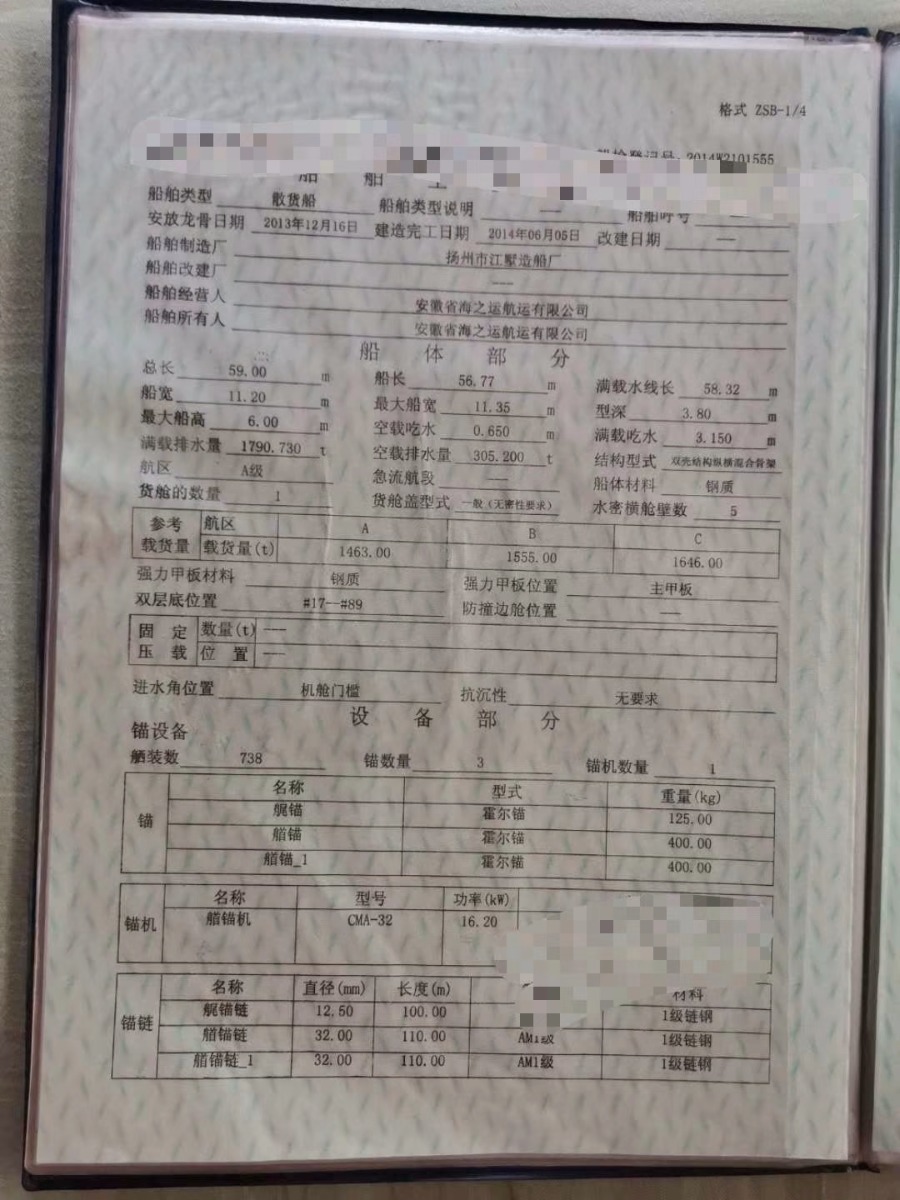 格式 ZSB-1/4
船检登记号: 2014W2101555
船 舶
船舶类型 散货船 船舶类型说明 —— 船舶呼号 —
安放龙骨日期 2013年12月16日 建造完工日期 2014年06月05日 改建日期 ——
船舶制造厂 扬州市江墅造船厂
船舶改建厂 ---
船舶经营人 安徽省海之运航运有限公司
船舶所有人 安徽省海之运航运有限公司
船 体 部 分
总长 59.00 m 船长 56.77 m 满载水线长 58.32 m
船宽 11.20 m 最大船宽 11.35 m 型深 3.80 m
最大船高 6.00 m 空载吃水 0.650 m 满载吃水 3.150 m
满载排水量 1790.730 t 空载排水量 305.200 t 结构型式 双壳结构纵横混合骨架
航区 A级 急流航段 —— 船体材料 钢质
货舱的数量 1 货舱盖型式 一般（无密性要求） 水密横舱壁数 5
参考 航区 A B C
载货量 载货量(t) 1463.00 1555.00 1646.00
强力甲板材料 钢质 强力甲板位置 主甲板
双层底位置 #17--#89 防撞边舱位置 ——
固 定 数量(t) ——
压 载 位 置 ——
进水角位置 机舱门槛 抗沉性 无要求
设 备 部 分
锚设备
舾装数 738 锚数量 3 锚机数量 1
锚 名称 型式 重量(kg)
艉锚 霍尔锚 125.00
艏锚 霍尔锚 400.00
艏锚_1 霍尔锚 400.00
锚机 名称 型号 功率(kW)
艏锚机 CMA-32 16.20
锚链 名称 直径(mm) 长度(m) 材料
艉锚链 12.50 100.00 1级链钢
艏锚链 32.00 110.00 AM1级 1级链钢
艏锚链_1 32.00 110.00 AM1级 1级链钢